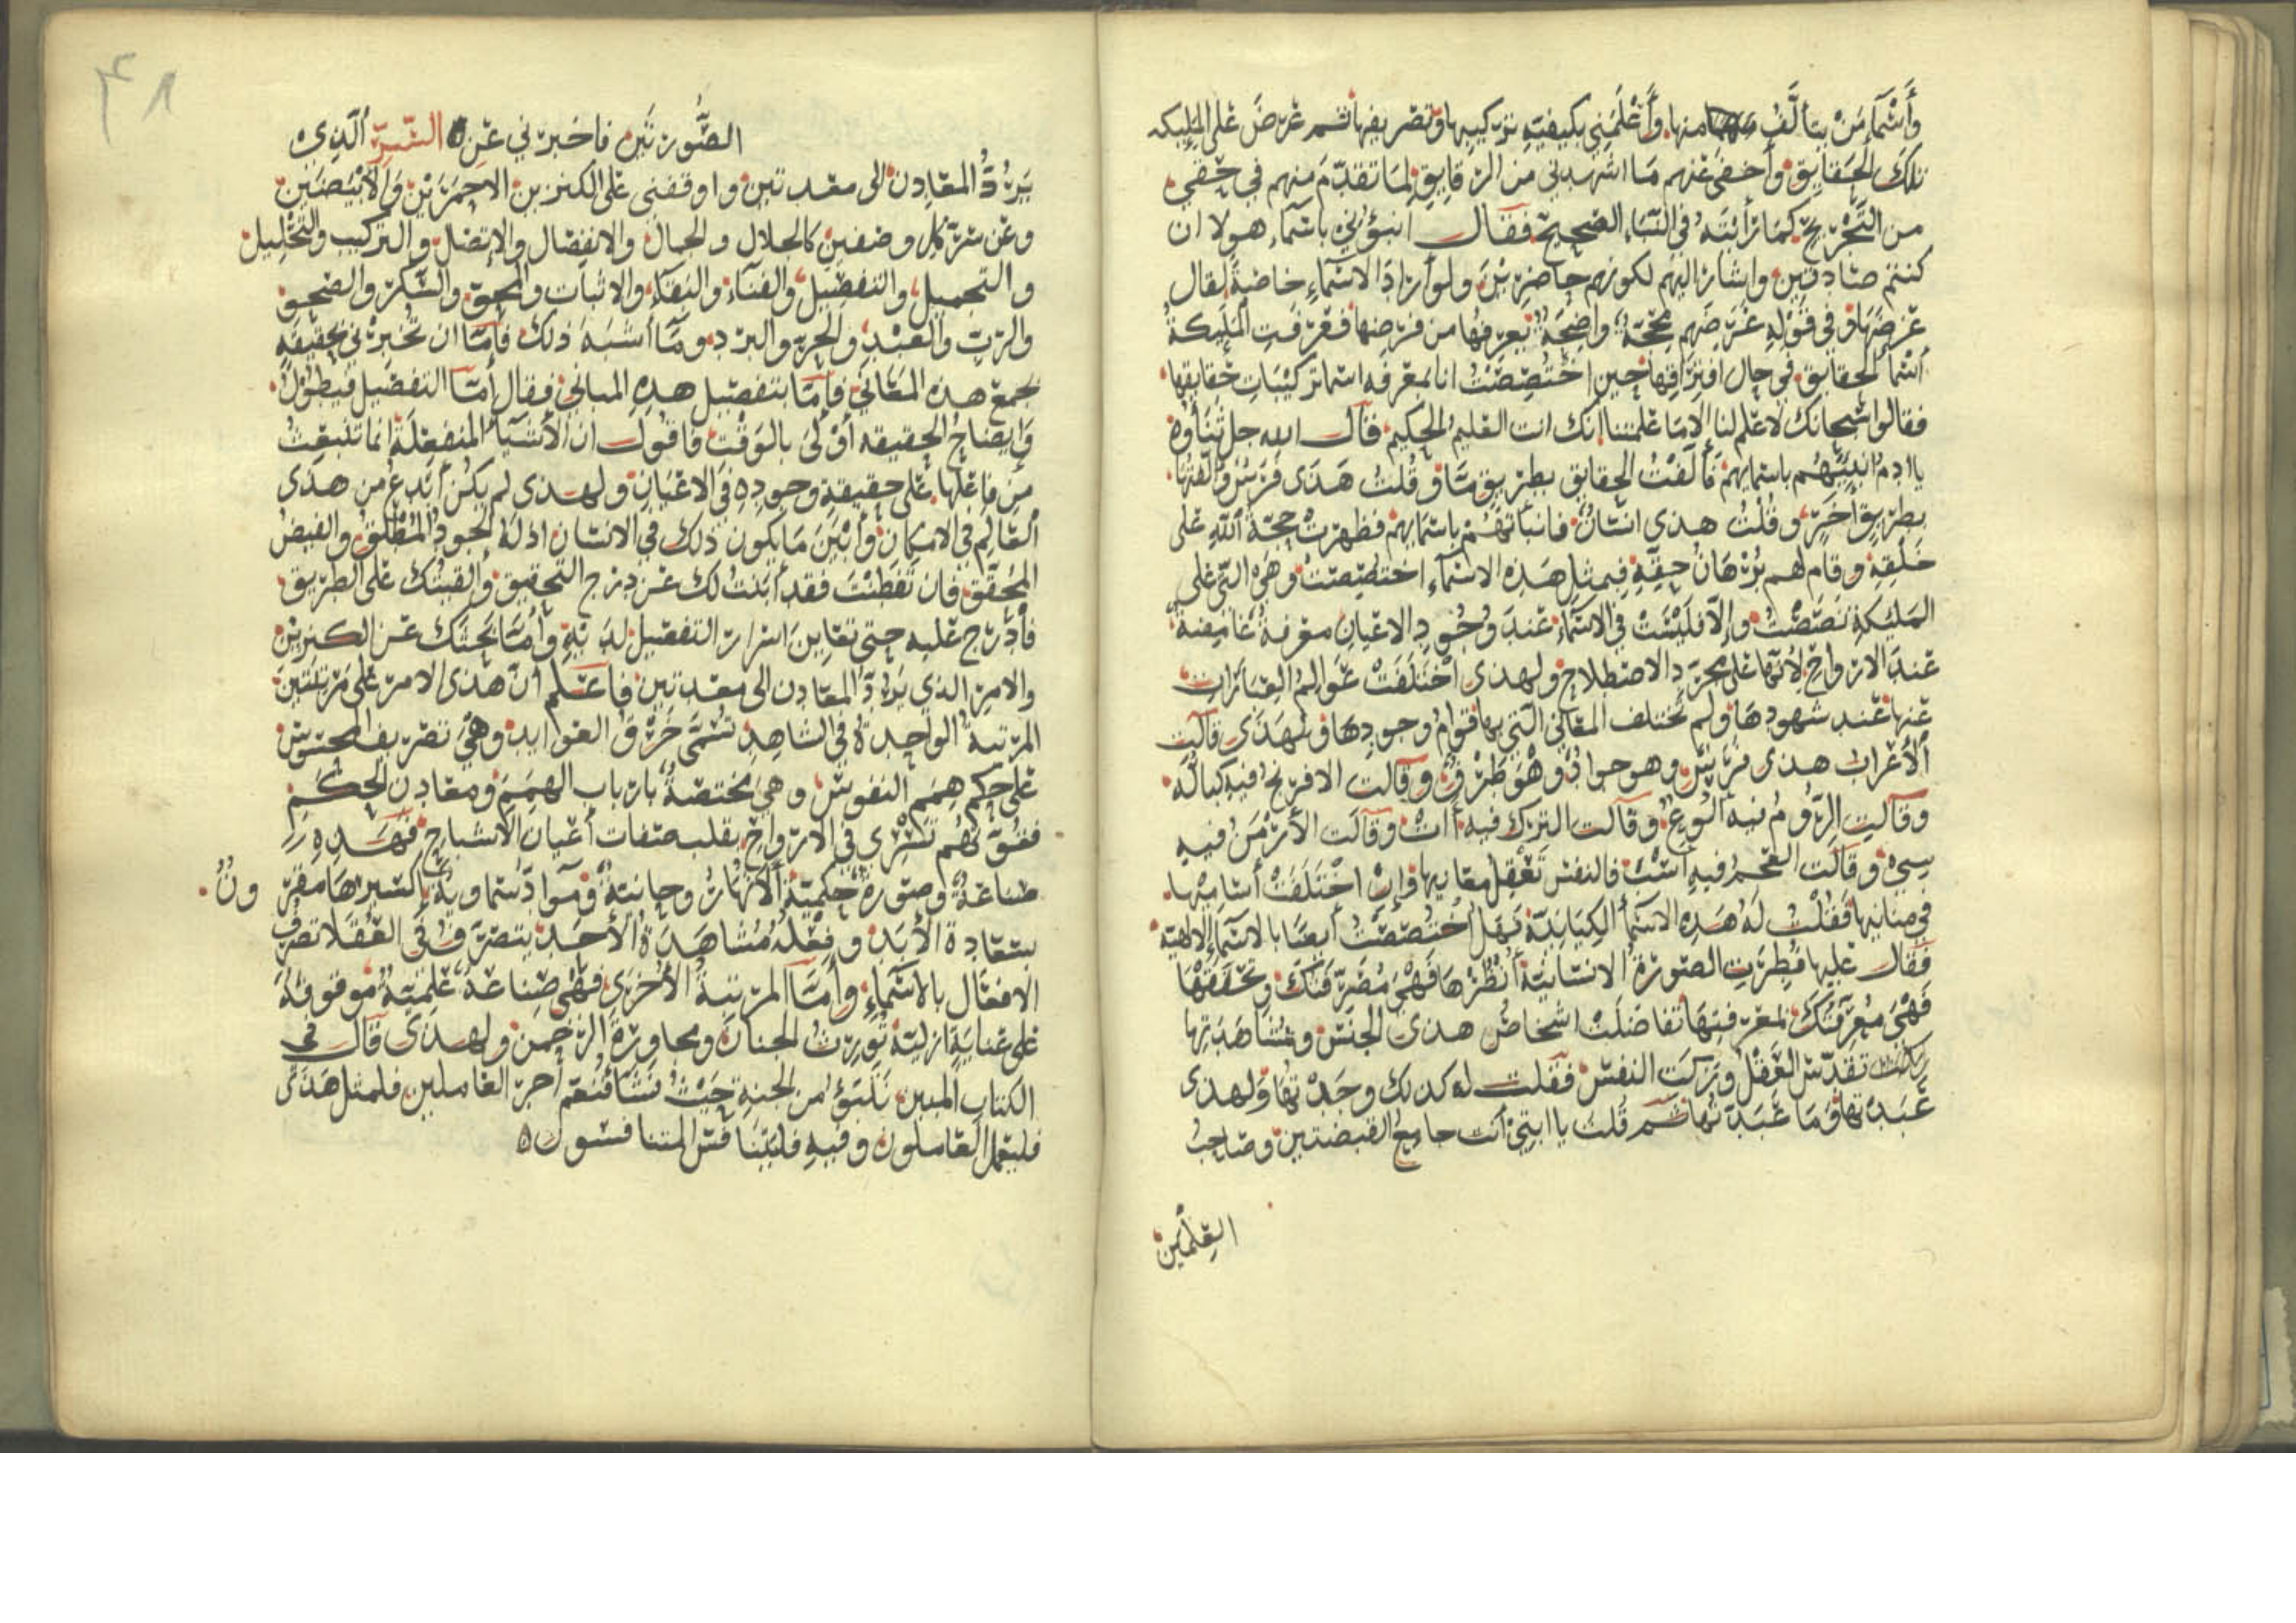 وأسماء من يتألف منها وأعلمني بكيفية تركيبها وتصريفها ثم عرض على المليكه
تلك الحقايق وأخفى عنهم ما اشهدني من الرقايق لما تقدم منهم في حقي
من التجريح كما رأيته في النباء الصحيح فقال أنبؤني باسماء هولا ان
كنتم صادقين واشار اليهم لكونهم حاضرين ولو أراد الاسماء خاصة لقال
عرضها وفي قوله عرضهم حجة واضحة يعرفها من فرضها فعرفت المليكة
أسما الحقايق في حال افتراقها حين اختصصت انا بمعرفه اسما تركيبات حقايقها
فقالوا سبحانك لا علم لنا إلا ما علمتنا إنك انت العليم الحكيم قال الله جل ثناؤه
يا ادم انبيهم باسمايهم فألفت الحقايق بطريق ما وقلت هذى فرس وألفتها
بطريق أخر وقلت هذى انسان فانبأتهم باسمايهم فظهرت حجة الله على
خلقه وقام لهم برهان حقه فبمثل هذه الاسماء اختصصت وهي التي على
المليكة نصصت وإلا فليست في الاسماء عند وجود الاعيان معرفة غامضة
عند الارواح لأنها على مجرد الاصطلاح ولهذى اختلفت عوالم العبارات
عنها عند شهودها ولم تختلف المعاني التي بها قوام وجودها ولهذى قالت
الأعراب هذى فرس وهو جواد وهو طرف وقالت الافرنج فيه كباله
وقالت الروم فيه ألوغ وقالت الترك فيه أات وقالت الأرمن فيه
سي وقالت العجم فيه أسب فالنفس تعقل معانيها وإن اختلفت أساميها
في مبانيها فقلت له هذه الاسمأ الكيانية فهل اختصصت أيضا بالاسماء الالهية
فقال عليها فطرت الصورة الانسانية أنظرها فهي مصرفتك وتحققها
فهي معرفتك لمعرفتها تفاضلت اشخاص هذى الجنس وبمشاهدتها
تقدس العقل وزكت النفس فقلت له كذلك وجدتها ولهذى
عبدتها وما عبدتها ثم قلت يا ابتي أنت جامع القبضتين وصاحب
العلمين
٣٨
الصورتين فاخبرني عن السر ألذي
يرد المعادن الى معدنين واوقفني على الكنزين الاحمرين والأبيضين
وعن سر كل وصفين كالجلال والجمال والانفصال والاتصال والتركيب والتحليل
والتجميل والتفصيل والفناء والبقاء والاثبات والمحق والسكر والصحو
والرب والعبد والحر والبرد وما أشبه ذلك فإما ان تخبرني بحقيقة
تجمع هذه المعاني فإما بتفصيل هذه المباني فقال أما التفصيل فيطول
وإيضاح الحقيقه أولى بالوقت فاقول ان الأشيا المنفعلة انما تنبعث
من فاعلها على حقيقة وجوده في الاعيان ولهذى لم يكن أبدع من هذى
العالم في الامكان وأين ما يكون ذلك في الانسان اذ له الجود المطلق والفيض
المحقق فان تفطنت فقد أبنت لك عن درج التحقيق وألقيتك على الطريق
فأدرج عليه حتى تعاين اسرار التفصيل لديه وأما بحثك عن الكنزين
والامر الذي يرد المعادن الى معدنين فاعلم أن هذى الامر على مرتبتين
المرتبة الواحدة في الشاهد تسمى خرق العوايد وهي تصريف المحسوس
على حكم همم النفوس وهي مختصة بارباب الهمم ومعادن الحكم
فقوتهم تسري في الارواح بقلب صفات أعيان الاشباح فهذه
صناعة وصورة حكمية ألأنهار وحانية وموادٌ سماوية إكسيرها مقر ون
بسعادة الأبد وفعله مشاهدة الأحد يتصرف في العقلا تصرف
الافعال بالاسماء وأما المرتبة الأخرى فهي صناعة علمية موقوفة
على عناية ازلية تورث الجنان ومجاورة الرحمن ولهذى قال في
الكتاب المبين نتبوؤ من الجنة حيث نشآ فنعم أجر العاملين فلمثل هذى
فليعمل العاملون وفيه فليتنافس المتنافسون ٥